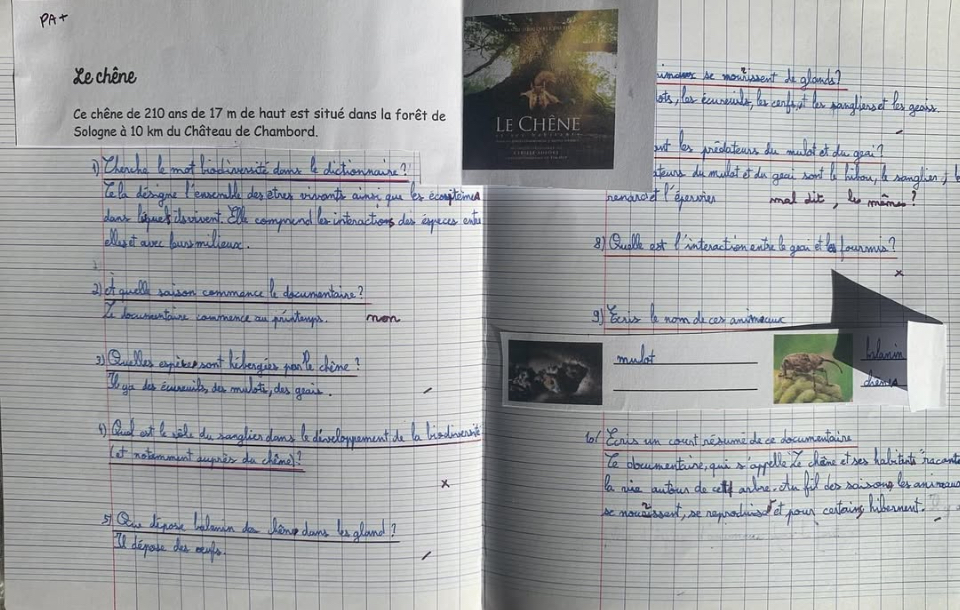 PA+
Le chêne
Ce chêne de 210 ans de 17 m de haut est situé dans la forêt de
Sologne à 10 km du Château de Chambord.
1) Cherche le mot biodiversité dans le dictionnaire ?
Cela désigne l'ensemble des êtres vivants ainsi que les écosystèmes
dans lequel ils vivent. Elle comprend les interactions des éspèces entre
elles et avec leurs milieux.
2) À quelle saison commence le documentaire ?
Le documentaire commence au printemps. non
3) Quelles espèces sont hébergées par le chêne ?
Il y a des écureuils, des mulots, des geais.
4) Quel est le rôle du sanglier dans le développement de la biodiversité
(et notamment auprès du chêne) ?
x
5) Que dépose balanin du chêne dans les gland ?
Il dépose des œufs.
LE CHÊNE
se nourissent de glands ?
les écureuils, les cerfs, et les sangliers et les geais.
les prédateurs du mulot et du geai ?
du mulot et du geai sont le hibou, le sanglier,
renard et l'épervier mal dit, les mêmes ?
8) Quelle est l'interaction entre le geai et les fourmis ?
x
9) Ecris le nom de ces animaux
mulot
balanin
chênes
10) Ecris un court résumé de ce documentaire
Ce documentaire, qui s'appelle "Le chêne et ses habitants" raconte
la vie autour de cet arbre. Au fil des saisons, les animaux
se nourrissent, se reproduisent et pour certains hibernent.